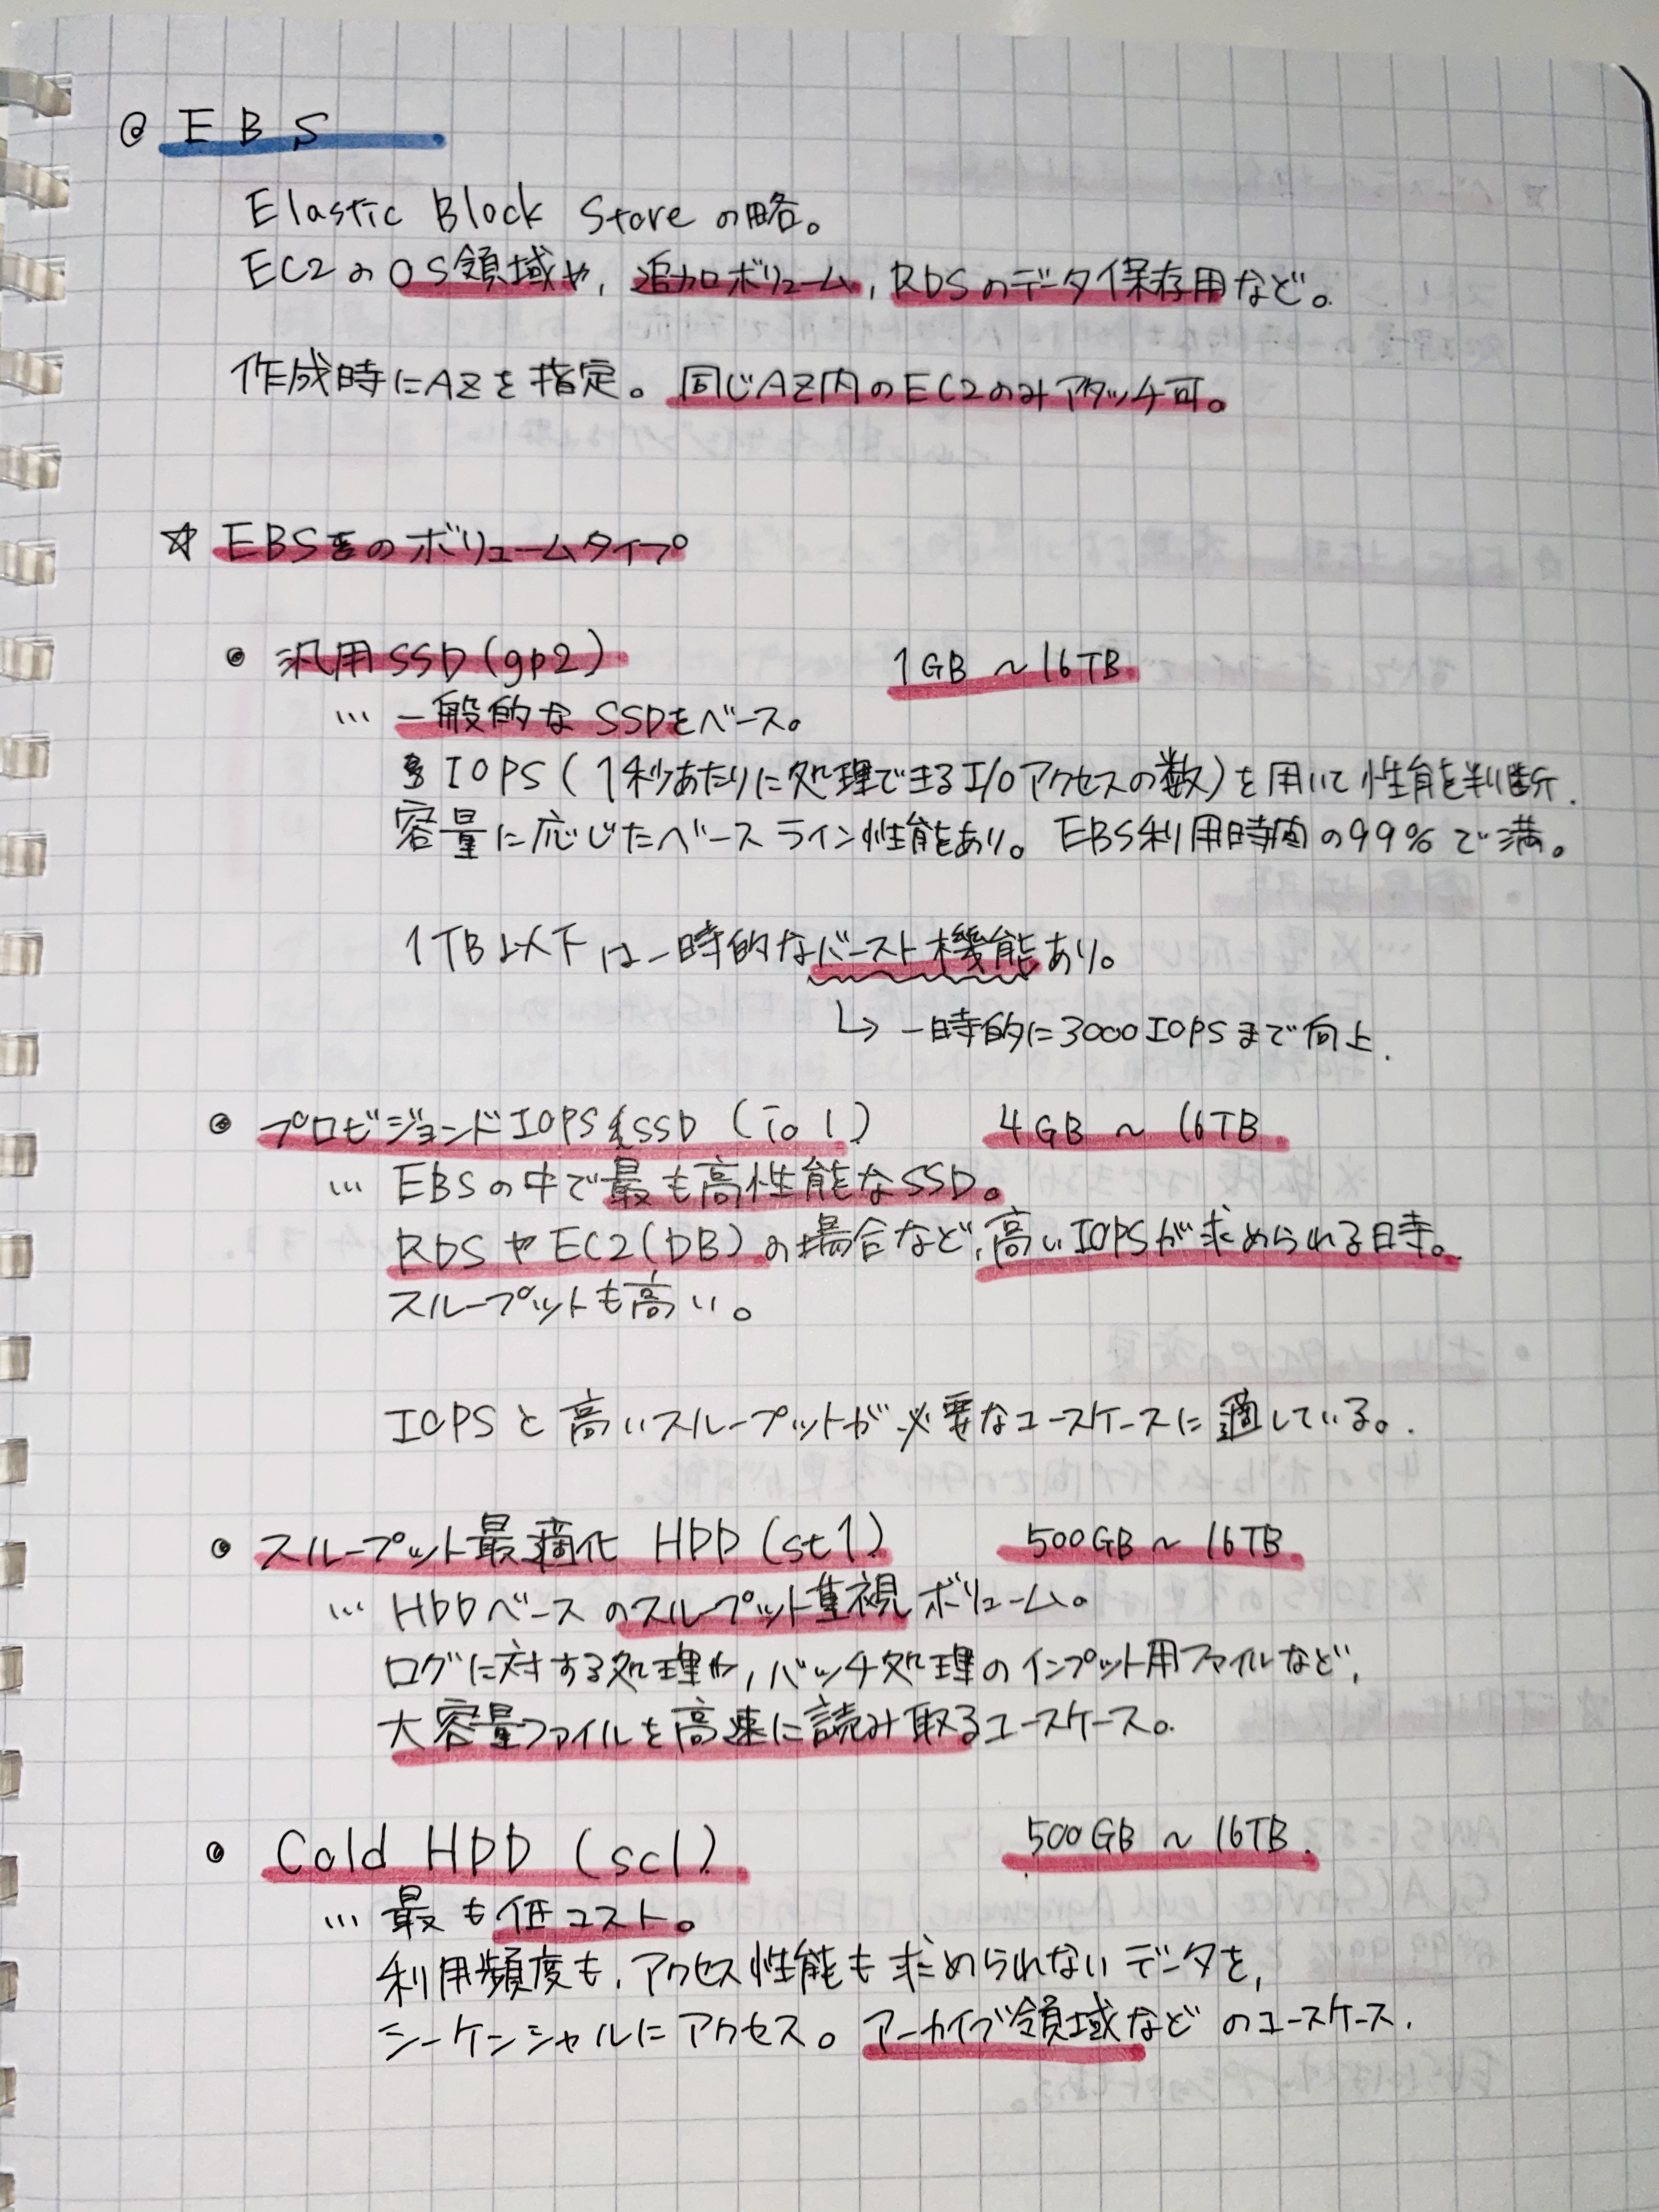 @ EBS
Elastic Block Store の略。
EC2のOS領域や, 追加ボリューム, RDSのデータ保存用など。
作成時にAZを指定。同じAZ内のEC2のみアタッチ可。
☆ EBSのボリュームタイプ
• 汎用SSD(gp2) 1GB ~ 16TB
… 一般的なSSDをベース。
IOPS(1秒あたりに処理できるI/Oアクセスの数)を用いて性能を判断.
容量に応じたベースライン性能あり。EBS利用時間の99%で満。
1TB以下は一時的なバースト機能あり。
↳ 一時的に3000IOPSまで向上.
• プロビジョンドIOPS SSD (io1) 4GB ~ 16TB
… EBSの中で最も高性能なSSD。
RDSやEC2(DB)の場合など, 高いIOPSが求められる時。
スループットも高い。
IOPSと高いスループットが必要なユースケースに適している。
• スループット最適化 HDD(st1) 500GB ~ 16TB
… HDDベースのスループット重視ボリューム。
ログに対する処理や, バッチ処理のインプット用ファイルなど,
大容量ファイルを高速に読み取るユースケース。
• Cold HDD (sc1) 500GB ~ 16TB.
… 最も低コスト。
利用頻度も, アクセス性能も求められないデータを,
シーケンシャルにアクセス。アーカイブ領域などのユースケース.